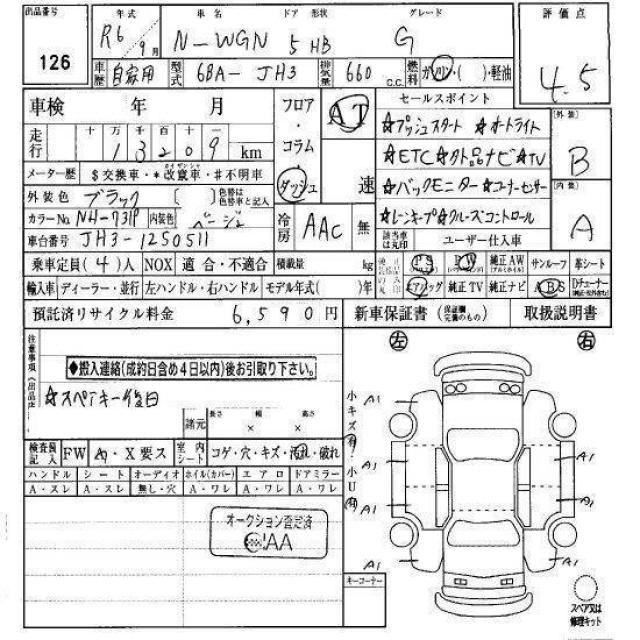 出品番号 年式 車名 ドア 形状 グレード 評価点
126 R6 9月 N-WGN 5 HB G 4.5
車歴 自家用 型式 6BA-JH3 排気量 660 C.C. 燃料 ガソリン・( )・軽油
車検 年 月 フロア・コラム・ダッシュ AT 速 セールスポイント 外装 B
走行 十 万 千 百 十 一 ☆プッシュスタート ☆オートライト
13209 km ☆ETC☆外品ナビ☆TV
メーター歴 $交換車・*改竄車・#不明車 ☆バックモニター☆コーナーセンサー 内装 A
外装色 ブラック [ ] 色替は色替車と記入 ☆レーンキープ☆クルーズコントロール
カラーNo. NH-731P 内装色 ベージュ 冷房 AAC 無 該当車は丸印 ユーザー仕入車
車台番号 JH3-1250511
乗車定員(4)人 NOX 適合・不適合 積載量 kg PS PW 純正AW サンルーフ 革シート
輸入車 ディーラー・並行 左ハンドル・右ハンドル モデル年式( )年 エアバッグ 純正TV 純正ナビ ABS Dチューナー
預託済リサイクル料金 6,590円 新車保証書 (保証欄完備のもの) 取扱説明書
注意事項 左 右
◆搬入連絡(成約日含め4日以内)後お引取り下さい。
☆スペアキー後日
諸元 長さ × 幅 × 高さ
小キズ有 小U有
検査員記入 FW A・X要ス 室内シート コゲ・穴・キズ・汚れ・破れ
ハンドル シート オーディオ ホイル(カバー) エアロ ドアミラー
A・スレ A・スレ 無し・穴 A・ワレ A・ワレ A・ワレ
オークション査定済
JAA
A1 A1
A1 A1
A1 A1
A1 A1
キーコーナー
スペア又は修理キット